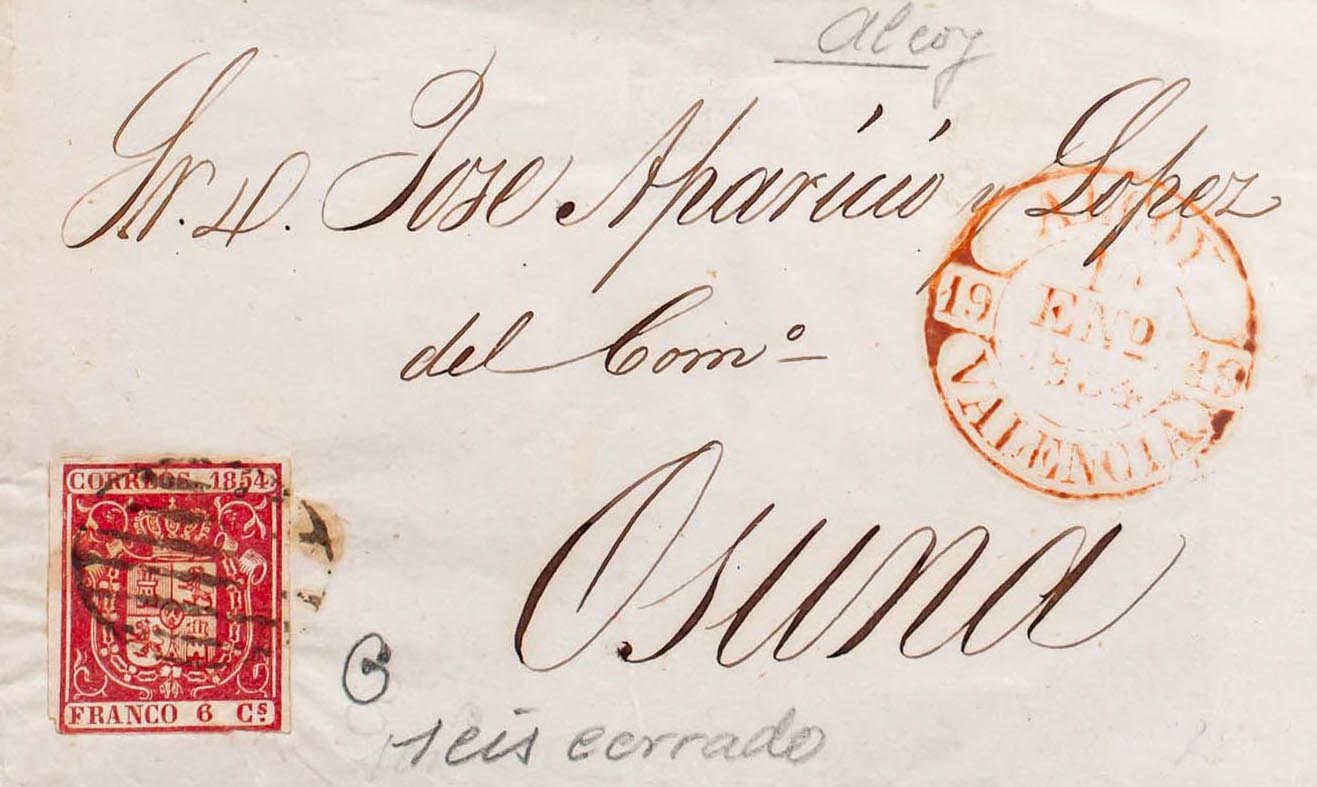 Alcoy
Sr. D. Jose Aparicio y Lopez
del Com.º
Osuna
ALCOY
19
ENº
1854
19 18
VALENCIA
CORREOS. 1854.
FRANCO 6 Cs
6
seis cerrado